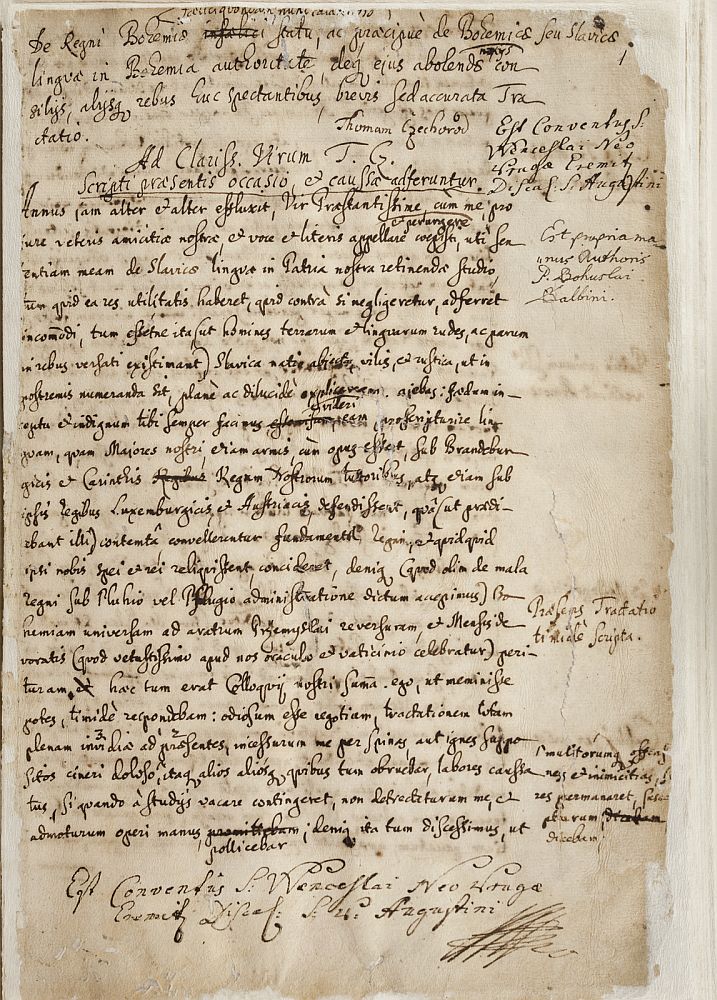 De Regni Bohemiæ infælici statu, ac præcipuè de Bohemicæ seu Slavicæ
linguæ in Bohemia authoritate, deq ejus abolendæ con
silijs, alijsq rebus huc spectantibus, brevis sed accurata Tra
ctatio.
Thomam Czechorod
Ad Clariss. Virum T. C.
Scripti præsentis occasio, et caussæ adferuntur.
Est Conventus S:
Wenceslai Neo
Pragæ Eremit
Discal. S. Augustini
Annus jam alter et alter effluxit, Vir Præstantissime, cum me, pro
jure veteris amicitiæ nostræ et voce et literis appellare cœpisti, uti sen
Est propria ma
nus Authoris
P. Bohuslai
Balbini.
tentiam meam de Slavicæ linguæ in Patria nostra retinendæ studio,
tum quid ea res utilitatis haberet, quid contrà si negligeretur, adferret
incom̄odi, tum essétne ita (ut homines terrarum et linguarum rudes, ac parum
in rebus versati existimant) Slavica natio abiecta, vilis, et rustica, ut in
postremis numeranda sit, planè ac dilucidè explicarem. ajebas: fœdum in-
ceptu et indignum tibi semper facinus videri eam proscripturire lin
guam, quam Majores nostri etiam armis, cùm opus esset, sub Brandebur
gicis et Carinthis Regibus Regum Nostrorum tutoribus, atq etiam sub
ipsis Regibus Luxemburgicis et Austriacis defendissent, quâ (ut prædi-
cbant illi) contemtâ convellerentur fundamenta Regni, et quidquid
ipsi nobis spei et rei reliquissent, concideret, deniq (quod olim de mala
regni sub Pluhio vel Pflugio administratione dictum accepimus) Bo
hemiam universam ad aratrum Przemyslai reversuram, et Mensis de
Præsens Tractatio
timidè scripta.
voratis (quod vetustissimo apud nos oraculo et vaticinio celebratur) peri-
turam, et hæc tum erat Colloquij nostri sum̄a. ego, ut meminisse
potes, timidè respondebam: odiosum esse negotium, tractationem totam
plenam invidiæ ad præsentes, incessurum me per spinas aut ignes suppo
sitos cineri doloso, itaq alios aliosq, quibus tum obruebar, labores caussa
tus, si quando à studijs vacare contingeret, non detrectaturum me, et
admoturum operi manus promittebam; deniq ita tum discessimus, ut
pollicebar
multorumq offensi
nes et inimicitias, si
res permanaret
dicebam
dicebam
Est Conventûs S: Wenceslai Neo Pragæ
Eremit Discal: S: P: Augustini